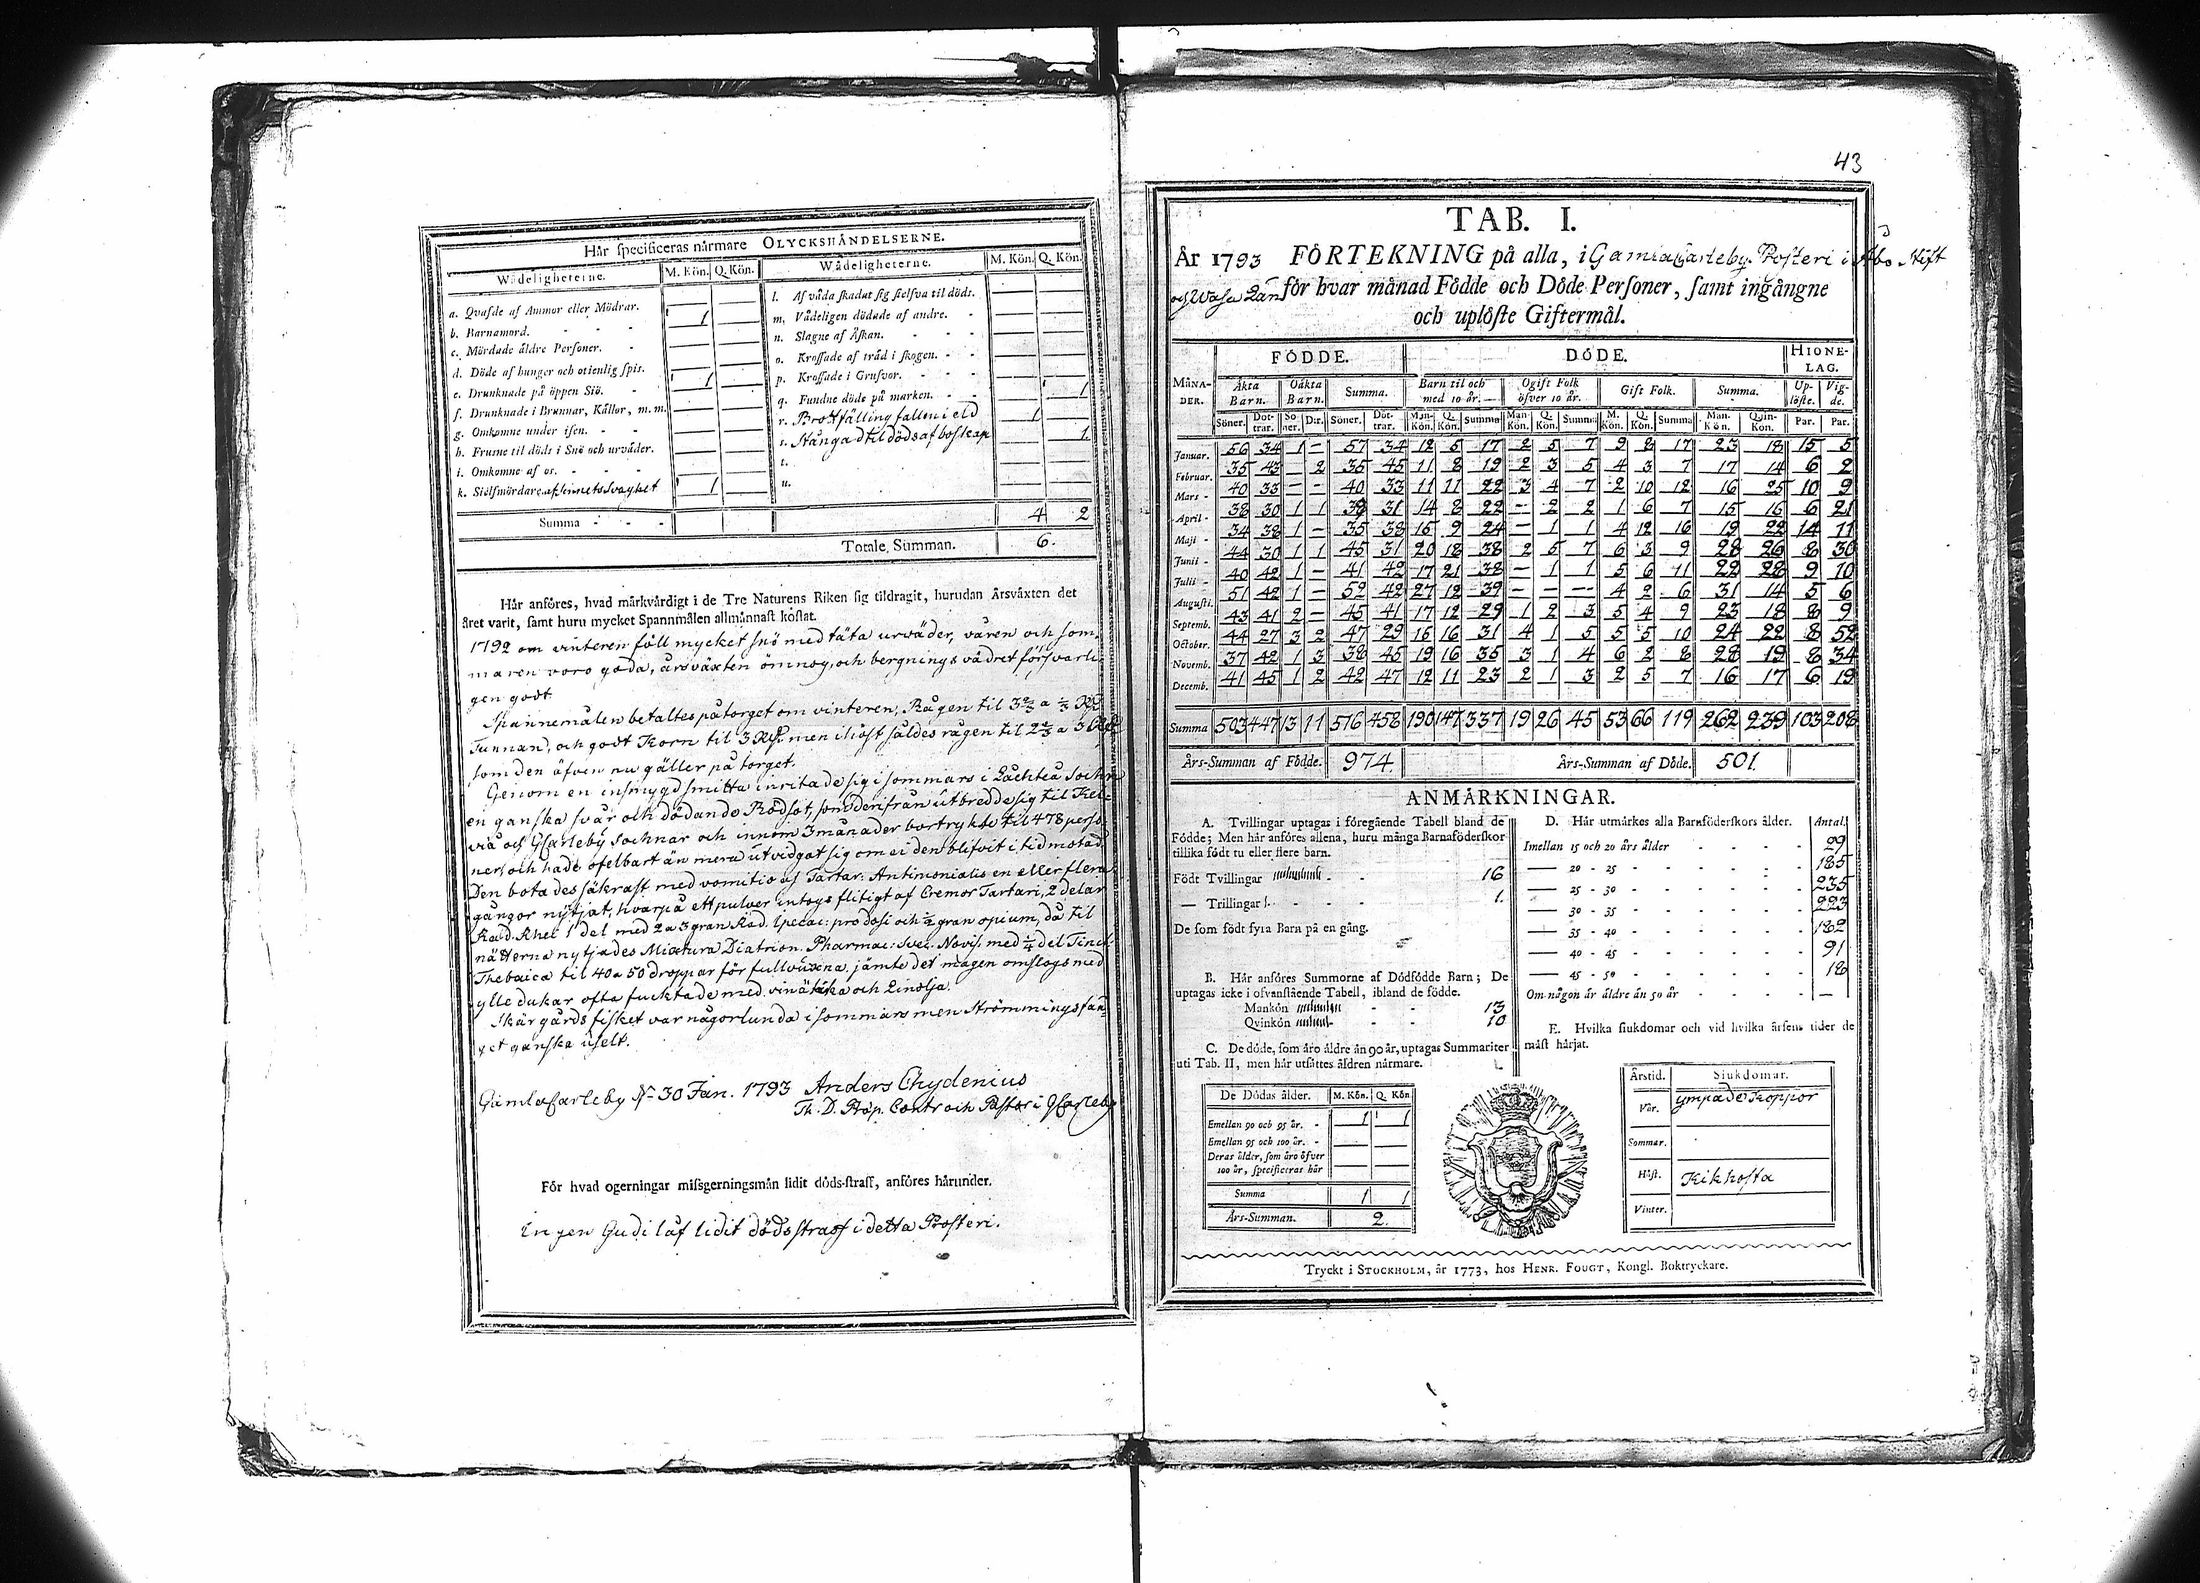 Hår specificeras nårmare OLYCKSHÅNDELSERNE.
Wådeligheterne. M. Kön. Q. Kön. Wådeligheterne. M. Kön. Q. Kön.
a. Qvafde af Ammor eller Mödrar. 1
b. Barnamord.
c. Mördade åldre Personer.
d. Döde af hunger och otienlig spis. 1
e. Drunknade på öppen Siö.
f. Drunknade i Brunnar, Kållor, m. m.
g. Omkomne under isen.
h. Frusne til döds i Snö och urvåder.
i. Omkomne af os.
k. Sielfmördare af sinnets svaghet 1
l. Af våda skadat sig sielfva til döds.
m. Vådeligen dödade af andre.
n. Slagne af Åskan.
o. Krossade af tråd i skogen.
p. Krossade i Grufvor.
q. Fundne döde på marken. 1
r. Brottfälling fallen i eld 1
s. Stångad til döds af boskap 1.
t.
u.
Summa 4 2
Totale Summan. 6.
Hår anföres, hvad mårkvårdigt i de Tre Naturens Riken sig tildragit, hurudan Årsvåxten det
året varit, samt huru mycket Spannmålen allmånnast kostat.
1792 om vinteren föll mycket snö med täta urväder, våren och som-
maren voro goda, årsväxten ömnog, och bergnings vädret försvarli-
gen godt.
Spannemålen betaltes på torget om vinteren, Rågen til 3 2/3 a 1/3 Rd
Tunnan, och godt Korn til 3 Rd men i höst såldes rågen til 2 2/3 a 3 Rd
som den äfven nu gäller på torget.
Genom en insmygd smitta inritade sig i sommars i Lachteå Sochn
en ganska svår och dödande Rödsot, som derifrån utbredde sig til Kel-
viå och GCarleby Sochnar och innom 3 månader bortrykte til 478 perso-
ner och hade ofelbart än mera utvidgat sig om ei den blifvit i tid motad.
Den botades säkrast med vomitio af Tartar: Antimonialis en eller flera
gångor nyttjat, hvarpå ett pulver intogs flitigt af Cremor Tartari, 2 delar
Rad. Rhei 1 del med 2 a 3 gran Rad. Ipecac: pro dosi och 1/2 gran opium, då til
nätterna nyttjades Mixtura Diatrion. Pharmac: Svec. Novis. med 1/4 del Tinct:
Thebaica til 40 a 50 droppar för fullvuxna jämte det magen omslogs med
ylle dukar ofta fucktade med vinättika och Linolja.
Skärgårds fisket var någorlunda i sommars men Strömmings fån-
get ganska uselt.
GamlaCarleby d. 30 Jan. 1793 Anders Chydenius
Th. D. Prop. Contr och Pastor i GCarleby
För hvad ogerningar missgerningsmån lidit döds-straff, anföres hårunder.
Ingen Gudi låf lidit dödsstraff i detta Prosteri.
43
TAB. I.
År 1793 FÖRTEKNING på alla, i GamlaCarleby Prosteri i Åbo Stift
och Wasa Län för hvar månad Födde och Döde Personer, samt ingångne
och uplöste Giftermål.
MÅNADER. FÖDDE. DÖDE. HIONELAG.
Åkta Barn. Oåkta Barn. Summa. Barn til och med 10 år. Ogift Folk öfver 10 år. Gift Folk. Summa. Uplöste. Vigde.
Söner. Döttrar. Söner. D:r. Söner. Döttrar. Man-Kön. Q. Kön. Summa Man-Kön. Q. Kön. Summa M. Kön. Q. Kön. Summa Man-Kön. Qvin-Kön. Par. Par.
Januar. 56 34 1 - 57 34 12 5 17 2 5 7 9 8 17 23 18 15 5
Februar. 35 43 - 2 35 45 11 8 19 2 3 5 4 3 7 17 14 6 2
Mars - 40 33 - - 40 33 11 11 22 3 4 7 2 10 12 16 25 10 9
April - 38 30 1 1 39 31 14 8 22 - 2 2 1 6 7 15 16 6 21
Maji - 34 38 1 - 35 38 15 9 24 - 1 1 4 12 16 19 22 14 11
Junii - 44 30 1 1 45 31 20 18 38 2 5 7 6 3 9 28 26 8 30
Julii - 40 42 1 - 41 42 17 21 38 - 1 1 5 6 11 22 28 9 10
Augusti. 51 42 1 - 52 42 27 12 39 - - - 4 2 6 31 14 5 6
Septemb. 43 41 2 - 45 41 17 12 29 1 2 3 5 4 9 23 18 8 9
October. 44 27 3 2 47 29 15 16 31 4 1 5 5 5 10 24 22 8 52
Novemb. 37 42 1 3 38 45 19 16 35 3 1 4 6 2 8 28 19 8 34
Decemb. 41 45 1 2 42 47 12 11 23 2 1 3 2 5 7 16 17 6 19
Summa 503 447 13 11 516 458 190 147 337 19 26 45 53 66 119 262 239 103 208
Års-Summan af Födde. 974. Års-Summan af Döde. 501.
ANMÅRKNINGAR.
A. Tvillingar uptagas i föregående Tabell bland de
Födde; Men hår anföres allena, huru många Barnaföderskor
tillika födt tu eller flere barn.
Födt Tvillingar 16
— Trillingar 1.
De som födt fyra Barn på en gång.
B. Hår anföres Summorne af Dödfödde Barn; De
uptagas icke i ofvanstående Tabell, ibland de födde.
Mankön 13
Qvinkön 10
C. De döde, som åro åldre ån 90 år, uptagas Summariter
uti Tab. II, men hår utsåttes åldren nårmare.
De Dödas ålder. M. Kön. Q. Kön
Emellan 90 och 95 år. 1 1
Emellan 95 och 100 år.
Deras ålder, som åro öfver
100 år, specificeras hår
Summa 1 1
Års-Summan. 2.
D. Hår utmårkes alla Barnföderskors ålder. Antal.
Imellan 15 och 20 års ålder 29
— 20 - 25 185
— 25 - 30 235
— 30 - 35 223
— 35 - 40 182
— 40 - 45 91
— 45 - 50 18
Om någon år åldre ån 50 år —
E. Hvilka siukdomar och vid hvilka årsens tider de
måst hårjat.
Årstid. Siukdomar.
Vår. ympade Koppor
Sommar.
Höst. Kikhosta
Vinter.
Tryckt i STOCKHOLM, år 1773, hos HENR. FOUGT, Kongl. Boktryckare.